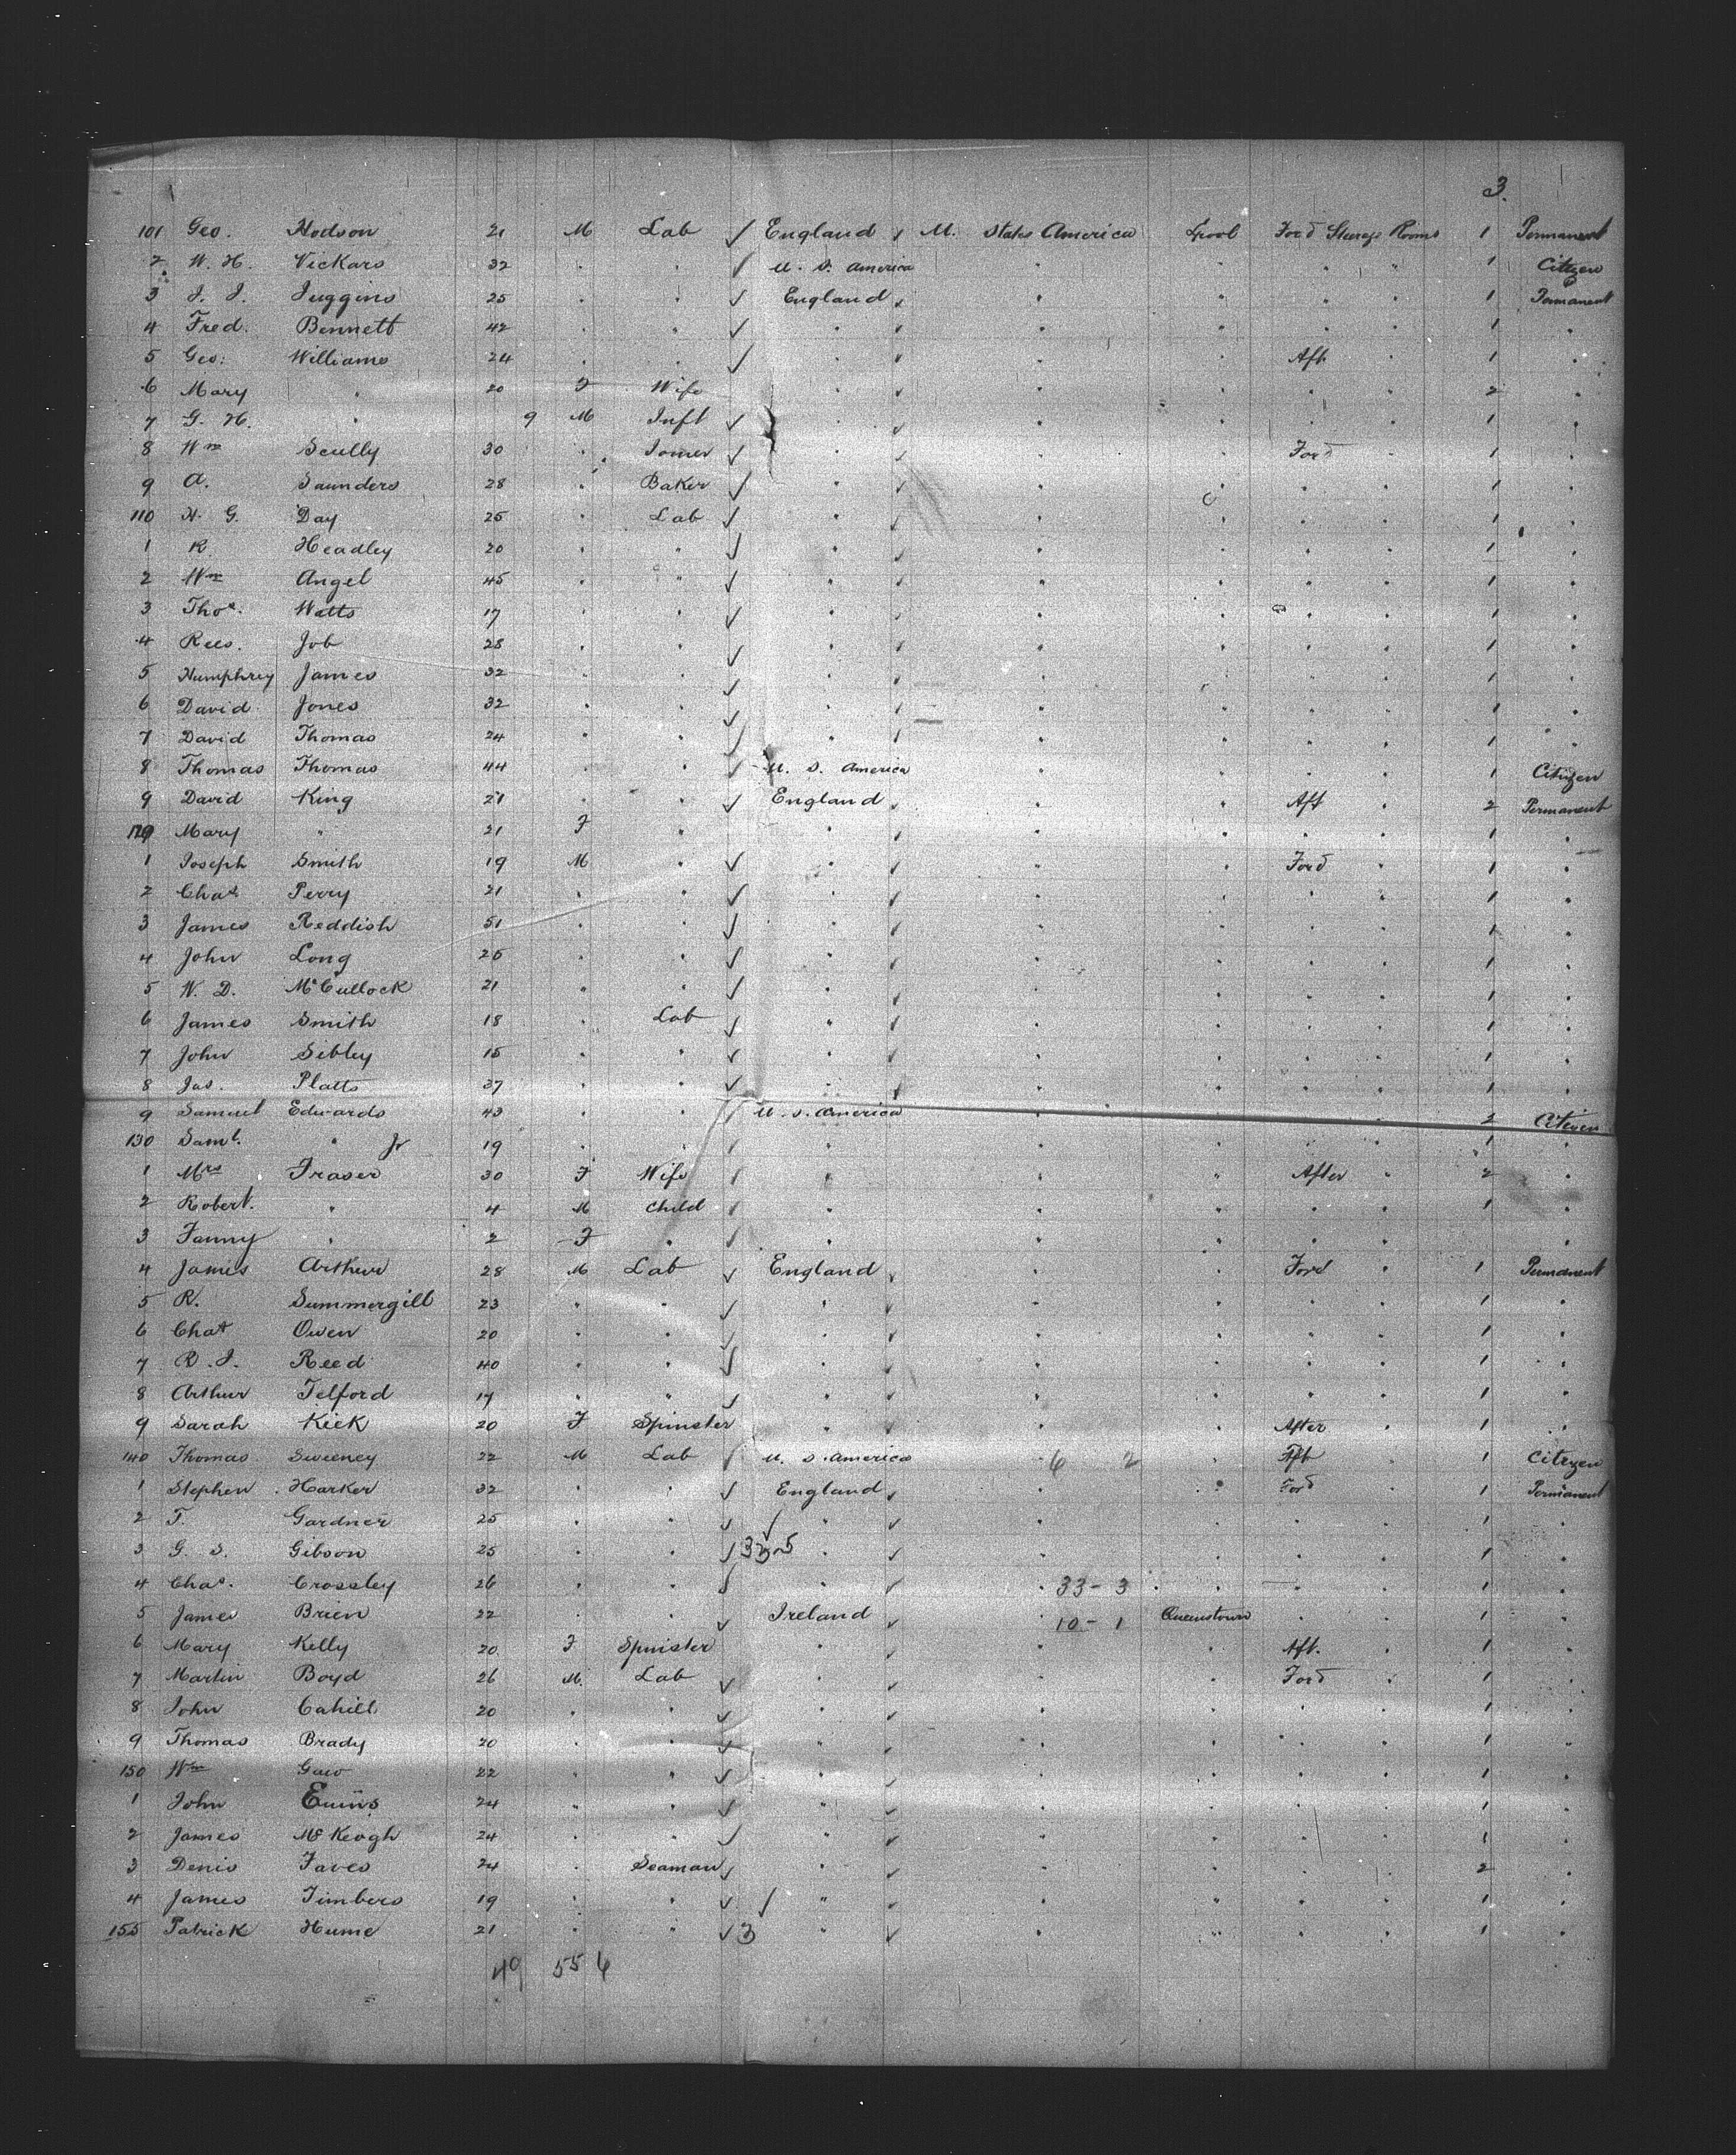 3.
101 Geo. Hodson 21 M Lab ✓ England ✓ U. States America L'pool For'd Steerage Rooms 1 Permanent
2 W. H. Vickars 32 " " ✓ U. S. America " " " " 1 Citizen
3 J. J. Juggins 25 " " ✓ England ✓ " " " " 1 Permanent
4 Fred. Bennett 42 " " ✓ " ✓ " " " " 1 "
5 Geo: Williams 24 " " ✓ " ✓ " " Aft " 1 "
6 Mary " 20 F Wife " ✓ " " " " 2 "
7 G. H. " 9 M Inft ✓ " ✓ " " " " 1 "
8 Wm Scully 30 " ✓ " ✓ " " For'd " 1 "
9 A. Saunders 28 " Baker ✓ " ✓ " " " " 1 "
110 H. G. Day 25 " Lab ✓ " ✓ " " " " 1 "
1 R. Headley 20 " " ✓ " ✓ " " " " 1 "
2 Wm Angel 45 " " ✓ " ✓ " " " " 1 "
3 Thos. Watts 17 " " ✓ " ✓ " " " " 1 "
4 Rees. Job 28 " " ✓ " ✓ " " " " 1 "
5 Humphrey James 32 " " ✓ " ✓ " " " " 1 "
6 David Jones 32 " " ✓ " ✓ " " " " 1 "
7 David Thomas 24 " " ✓ " ✓ " " " " 1 "
8 Thomas Thomas 44 " " ✓ U. S. America " " " " 1 Citizen
9 David King 21 " " ✓ England ✓ " " Aft " 2 Permanent
120 Mary " 21 F " " ✓ " " " " 1 "
1 Joseph Smith 19 M " ✓ " ✓ " " For'd " 1 "
2 Chas. Perry 21 " " ✓ " ✓ " " " " 1 "
3 James Reddish 51 " " ✓ " ✓ " " " " 1 "
4 John Long 25 " " ✓ " ✓ " " " " 1 "
5 W. D. McCullock 21 " " ✓ " ✓ " " " " 1 "
6 James Smith 18 " Lab ✓ " ✓ " " " " 1 "
7 John Sibley 15 " " ✓ " ✓ " " " " 1 "
8 Jas. Platts 37 " " ✓ " ✓ " " " " 1 "
9 Samuel Edwards 43 " " / U. S. America " " " " 2 Citizen
130 Saml. " Jr 19 " " / " " " " " 1 "
1 Mrs Fraser 30 F Wife / " " " After " 2 "
2 Robert. " 4 M Child / " " " " " 1 "
3 Fanny " 2 F " / " " " " " "
4 James Arthur 28 M Lab ✓ England ✓ " " For'd " 1 Permanent
5 R. Summergill 23 " " ✓ " ✓ " " " " 1 "
6 Chas Owen 20 " " ✓ " ✓ " " " " 1 "
7 R. J. Reed 40 " " ✓ " ✓ " " " " 1 "
8 Arthur Telford 17 " " ✓ " ✓ " " " " 1 "
9 Sarah Kick 20 F Spinster " ✓ " " After " 1 "
140 Thomas Sweeney 22 M Lab / U. S. America " 6 2 " Aft " 1 Citizen
1 Stephen Harker 32 " " ✓ England ✓ " " For'd " 1 Permanent
2 T. Gardner 25 " " ✓ " ✓ " " " " 1 "
3 G. S. Gibson 25 " " ✓ " ✓ " " " " 1 "
4 Chas. Crossley 26 " " ✓ " ✓ " 33-3 " " " 1 "
5 James Brien 22 " " ✓ Ireland ✓ " 10-1 Queenstown " " 1 "
6 Mary Kelly 20 F Spinster " ✓ " " Aft. " 1 "
7 Martin Boyd 26 M. Lab ✓ " ✓ " " For'd " 1 "
8 John Cahill 20 " " ✓ " ✓ " " " " 1 "
9 Thomas Brady 20 " " ✓ " ✓ " " " " 1 "
150 Wm Gaw 22 " " ✓ " ✓ " " " " 1 "
1 John 24 " " ✓ " ✓ " " " " 1 "
2 James McKeogh 24 " " ✓ " ✓ " " " " 1 "
3 Denis 24 " Seaman ✓ " ✓ " " " " 2 "
4 James Timbers 19 " " ✓ " ✓ " " " " 1 "
155 Patrick Hume 21 " " ✓ 3 " ✓ " " " " 1 "
49 55 6